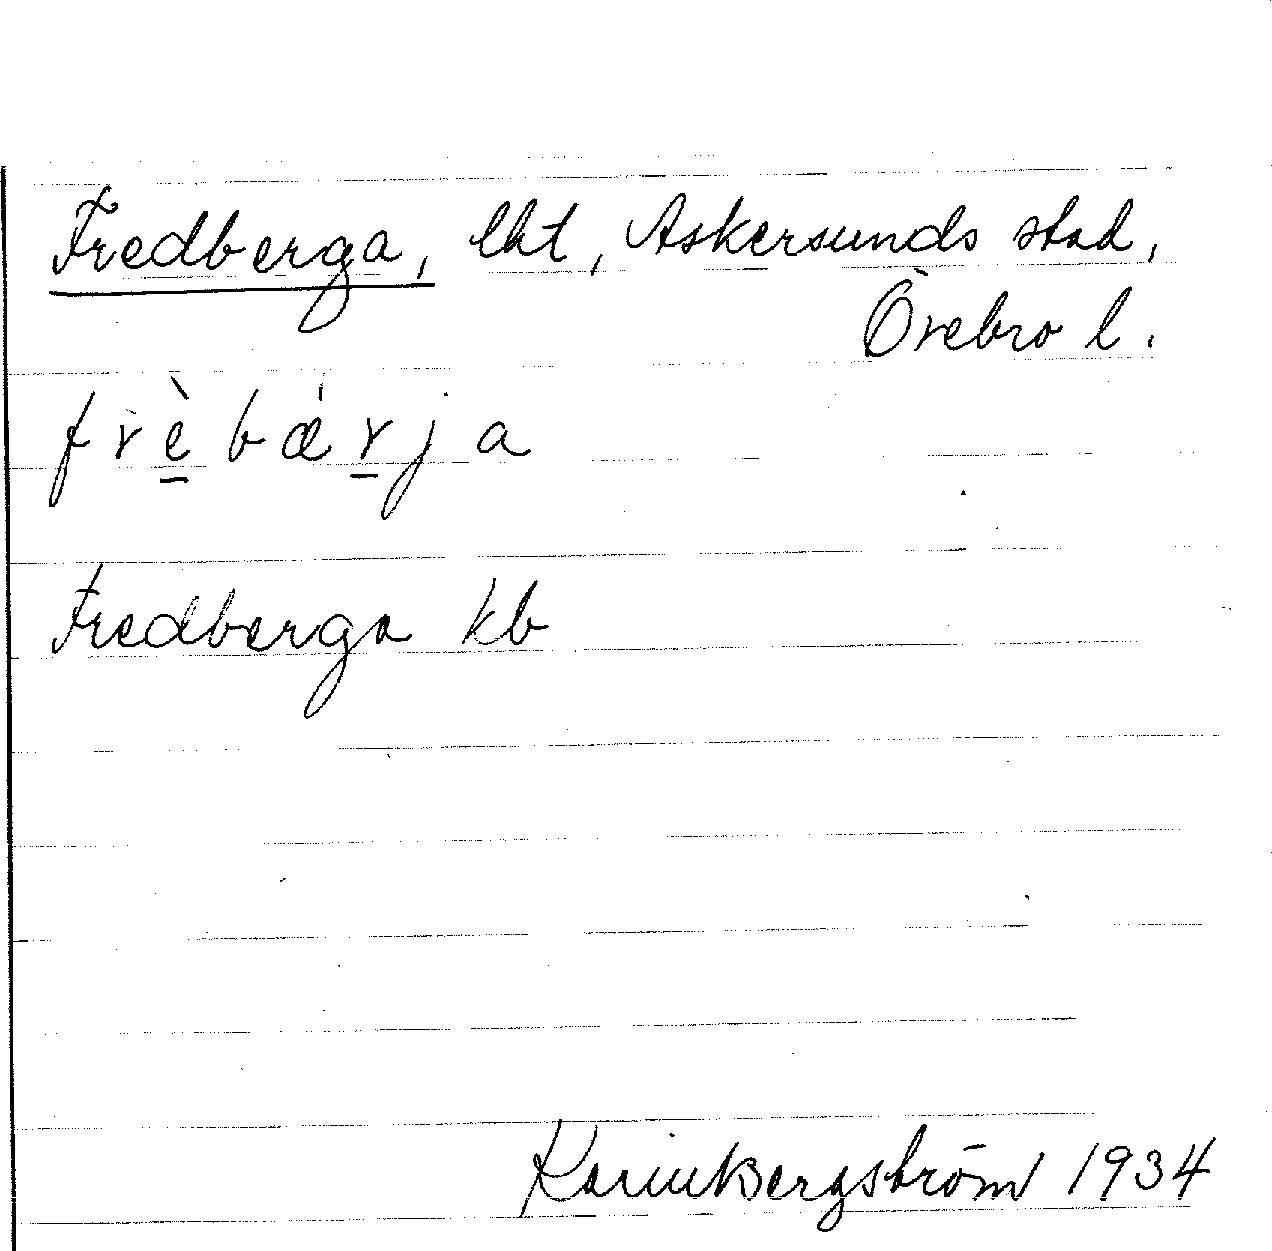 Fredberga, lht, Askersunds stad,
Örebro l.
frè̱bǽṟja
Fredberga kb
Karin Bergström 1934